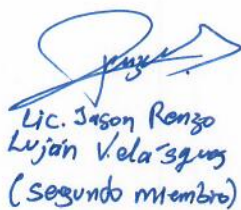 Lic. Jason Renzo
Luján Velásquez
(segundo miembro)